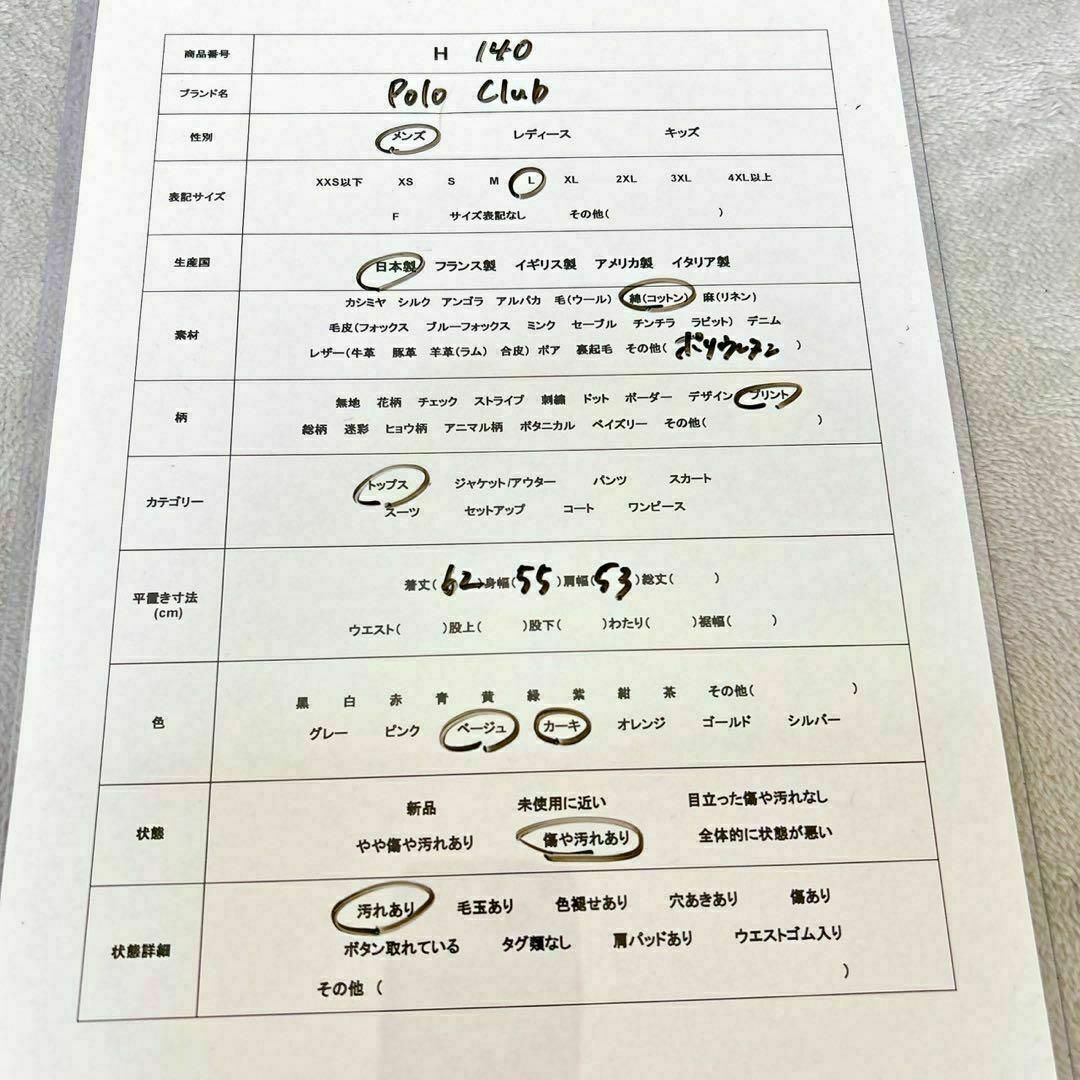 商品番号 H 140
ブランド名 Polo Club
性別 メンズ レディース キッズ
表記サイズ XXS以下 XS S M L XL 2XL 3XL 4XL以上
F サイズ表記なし その他( )
生産国 日本製 フランス製 イギリス製 アメリカ製 イタリア製
素材 カシミヤ シルク アンゴラ アルパカ 毛(ウール) 綿(コットン) 麻(リネン)
毛皮(フォックス ブルーフォックス ミンク セーブル チンチラ ラビット) デニム
レザー(牛革 豚革 羊革(ラム) 合皮) ボア 裏起毛 その他( ポリウレタン )
柄 無地 花柄 チェック ストライプ 刺繍 ドット ボーダー デザイン プリント
総柄 迷彩 ヒョウ柄 アニマル柄 ボタニカル ペイズリー その他( )
カテゴリー トップス ジャケット/アウター パンツ スカート
スーツ セットアップ コート ワンピース
平置き寸法
(cm)
着丈( 62 )身幅( 55 )肩幅( 53 )総丈( )
ウエスト( )股上( )股下( )わたり( )裾幅( )
色 黒 白 赤 青 黄 緑 紫 紺 茶 その他( )
グレー ピンク ベージュ カーキ オレンジ ゴールド シルバー
状態 新品 未使用に近い 目立った傷や汚れなし
やや傷や汚れあり 傷や汚れあり 全体的に状態が悪い
状態詳細 汚れあり 毛玉あり 色褪せあり 穴あきあり 傷あり
ボタン取れている タグ類なし 肩パッドあり ウエストゴム入り
その他 ( )